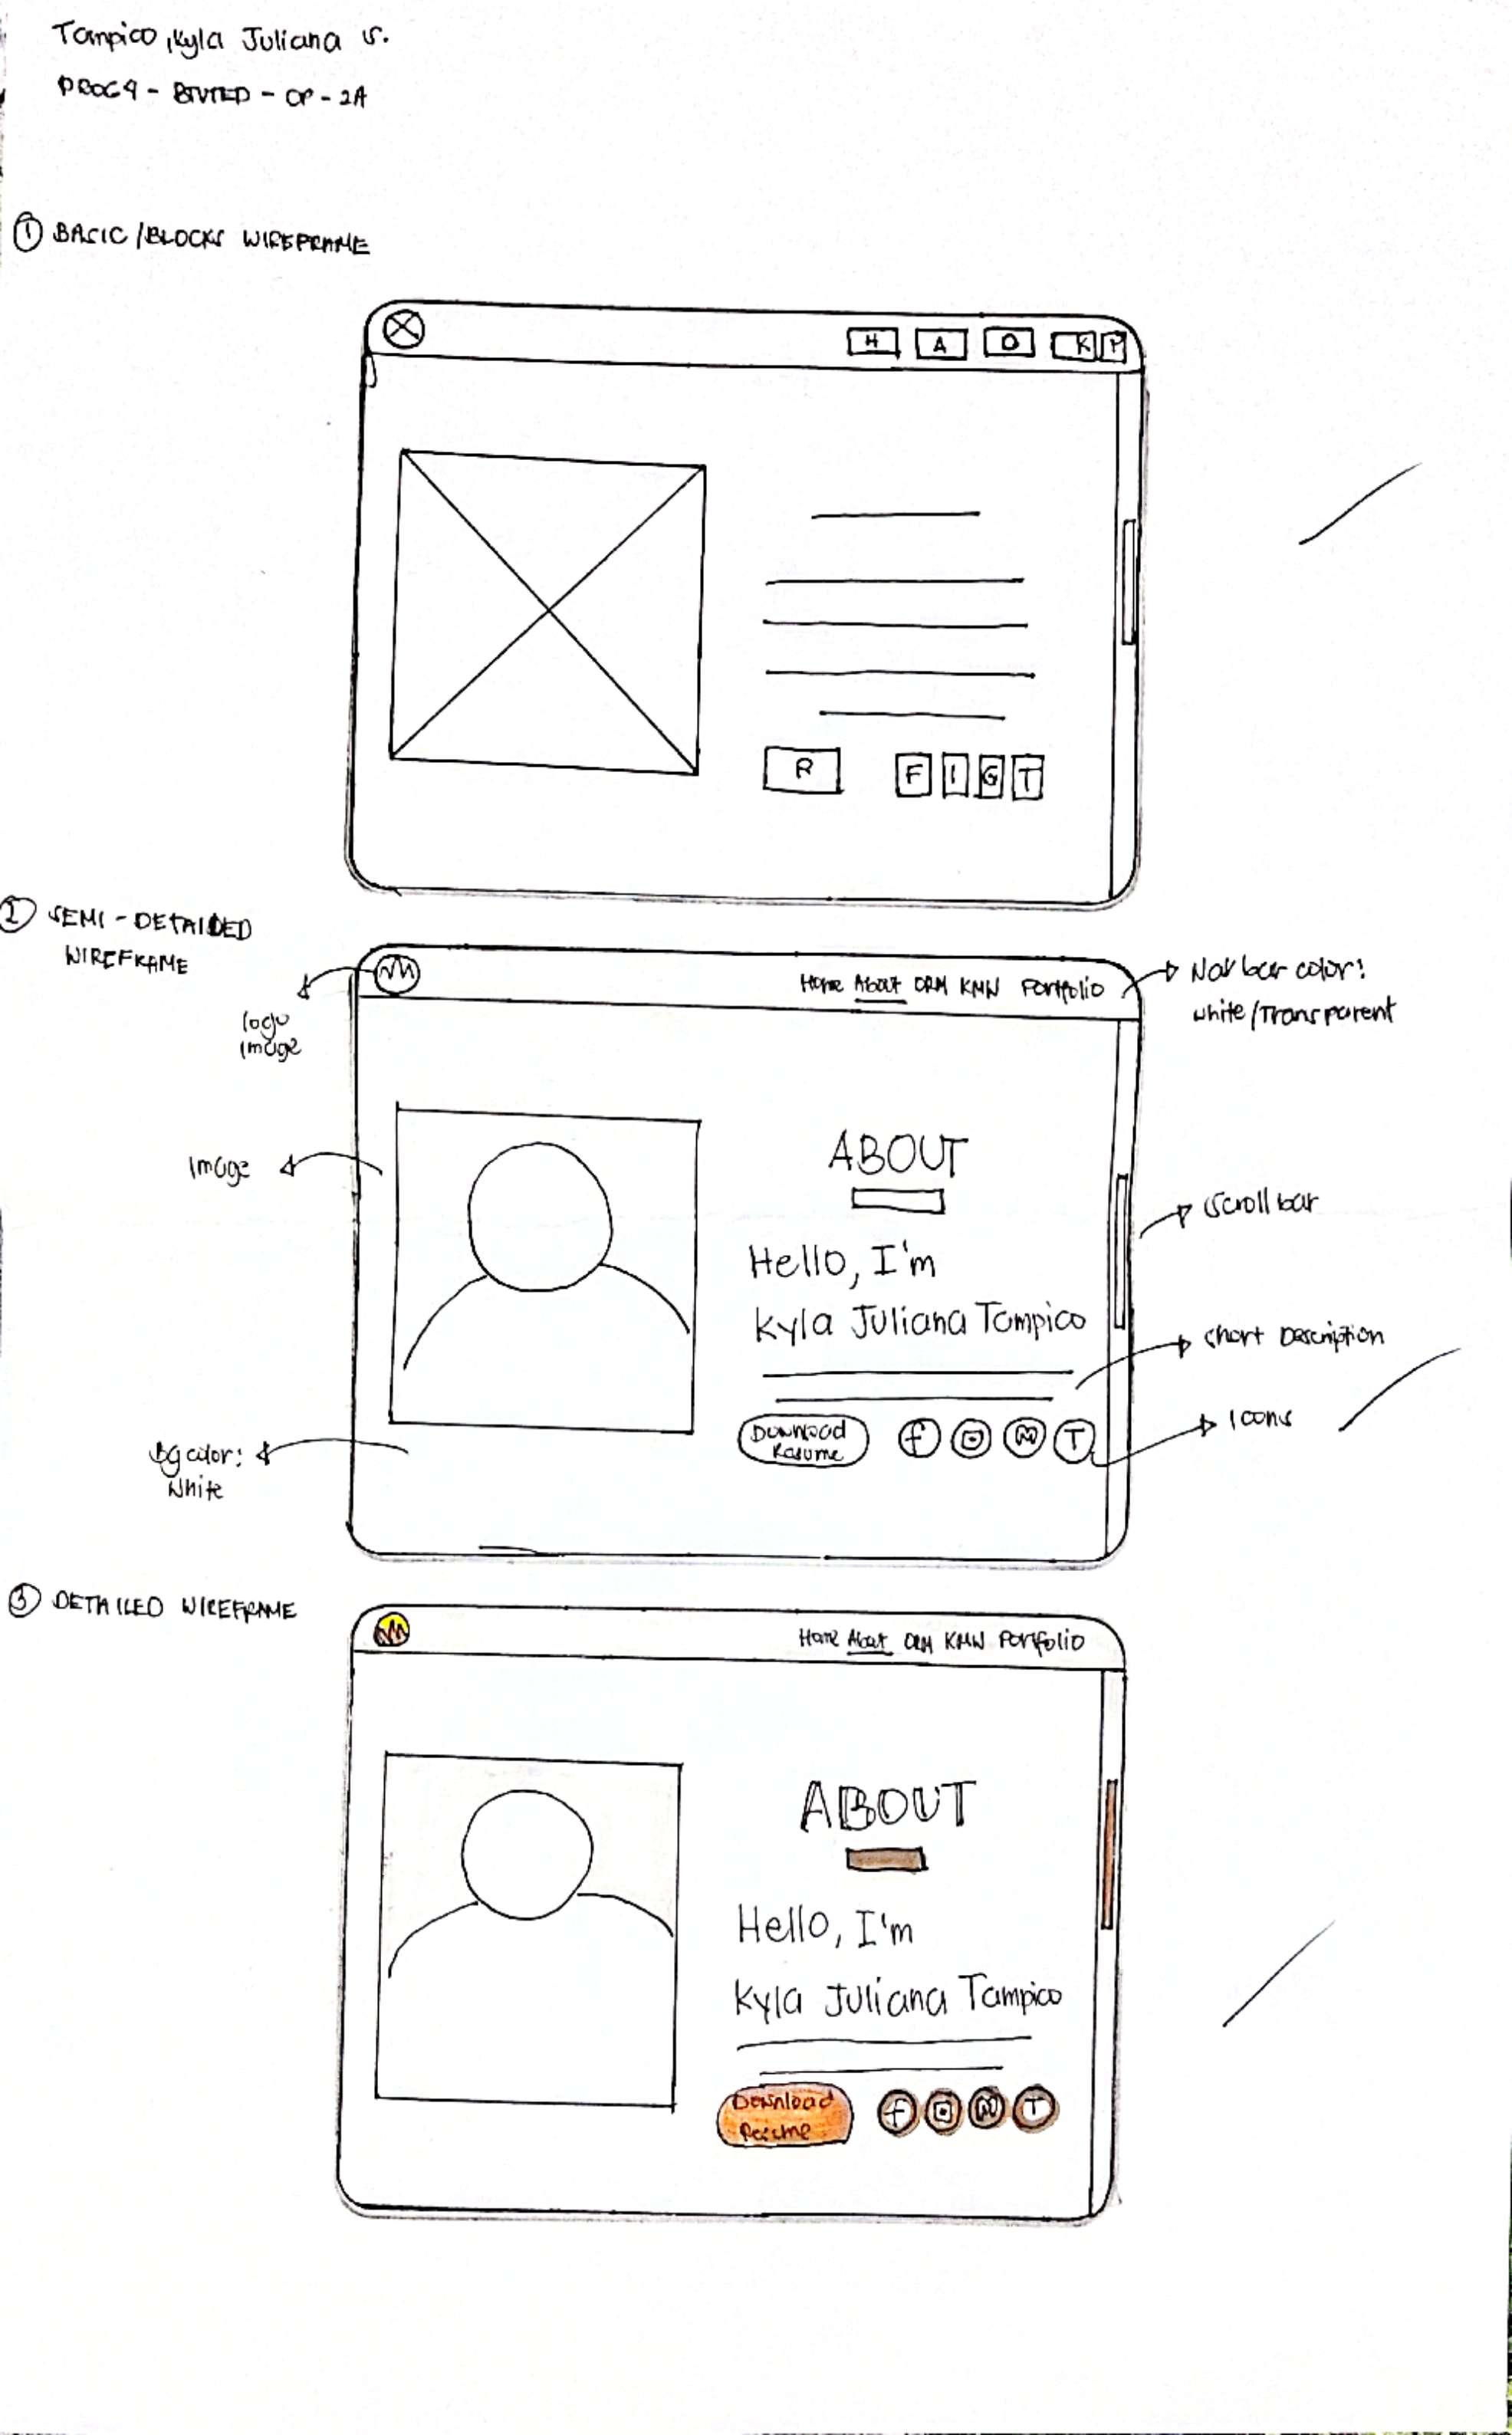 Tampico, Kyla Juliana S.
① BASIC / BLOCKS WIREFRAME
H A O K P
R F I G T
② SEMI-DETAILED
WIREFRAME
Home About ORM KMW Portfolio
Nav bar color:
white/Transparent
logo
image
image
ABOUT
scroll bar
Hello, I'm
Kyla Juliana Tampico
short Description
Download
Resume
f T
Icons
Bg color:
White
③ DETAILED WIREFRAME
Home About ORM KMW Portfolio
ABOUT
Hello, I'm
Kyla Juliana Tampico
Download
Resume
f T